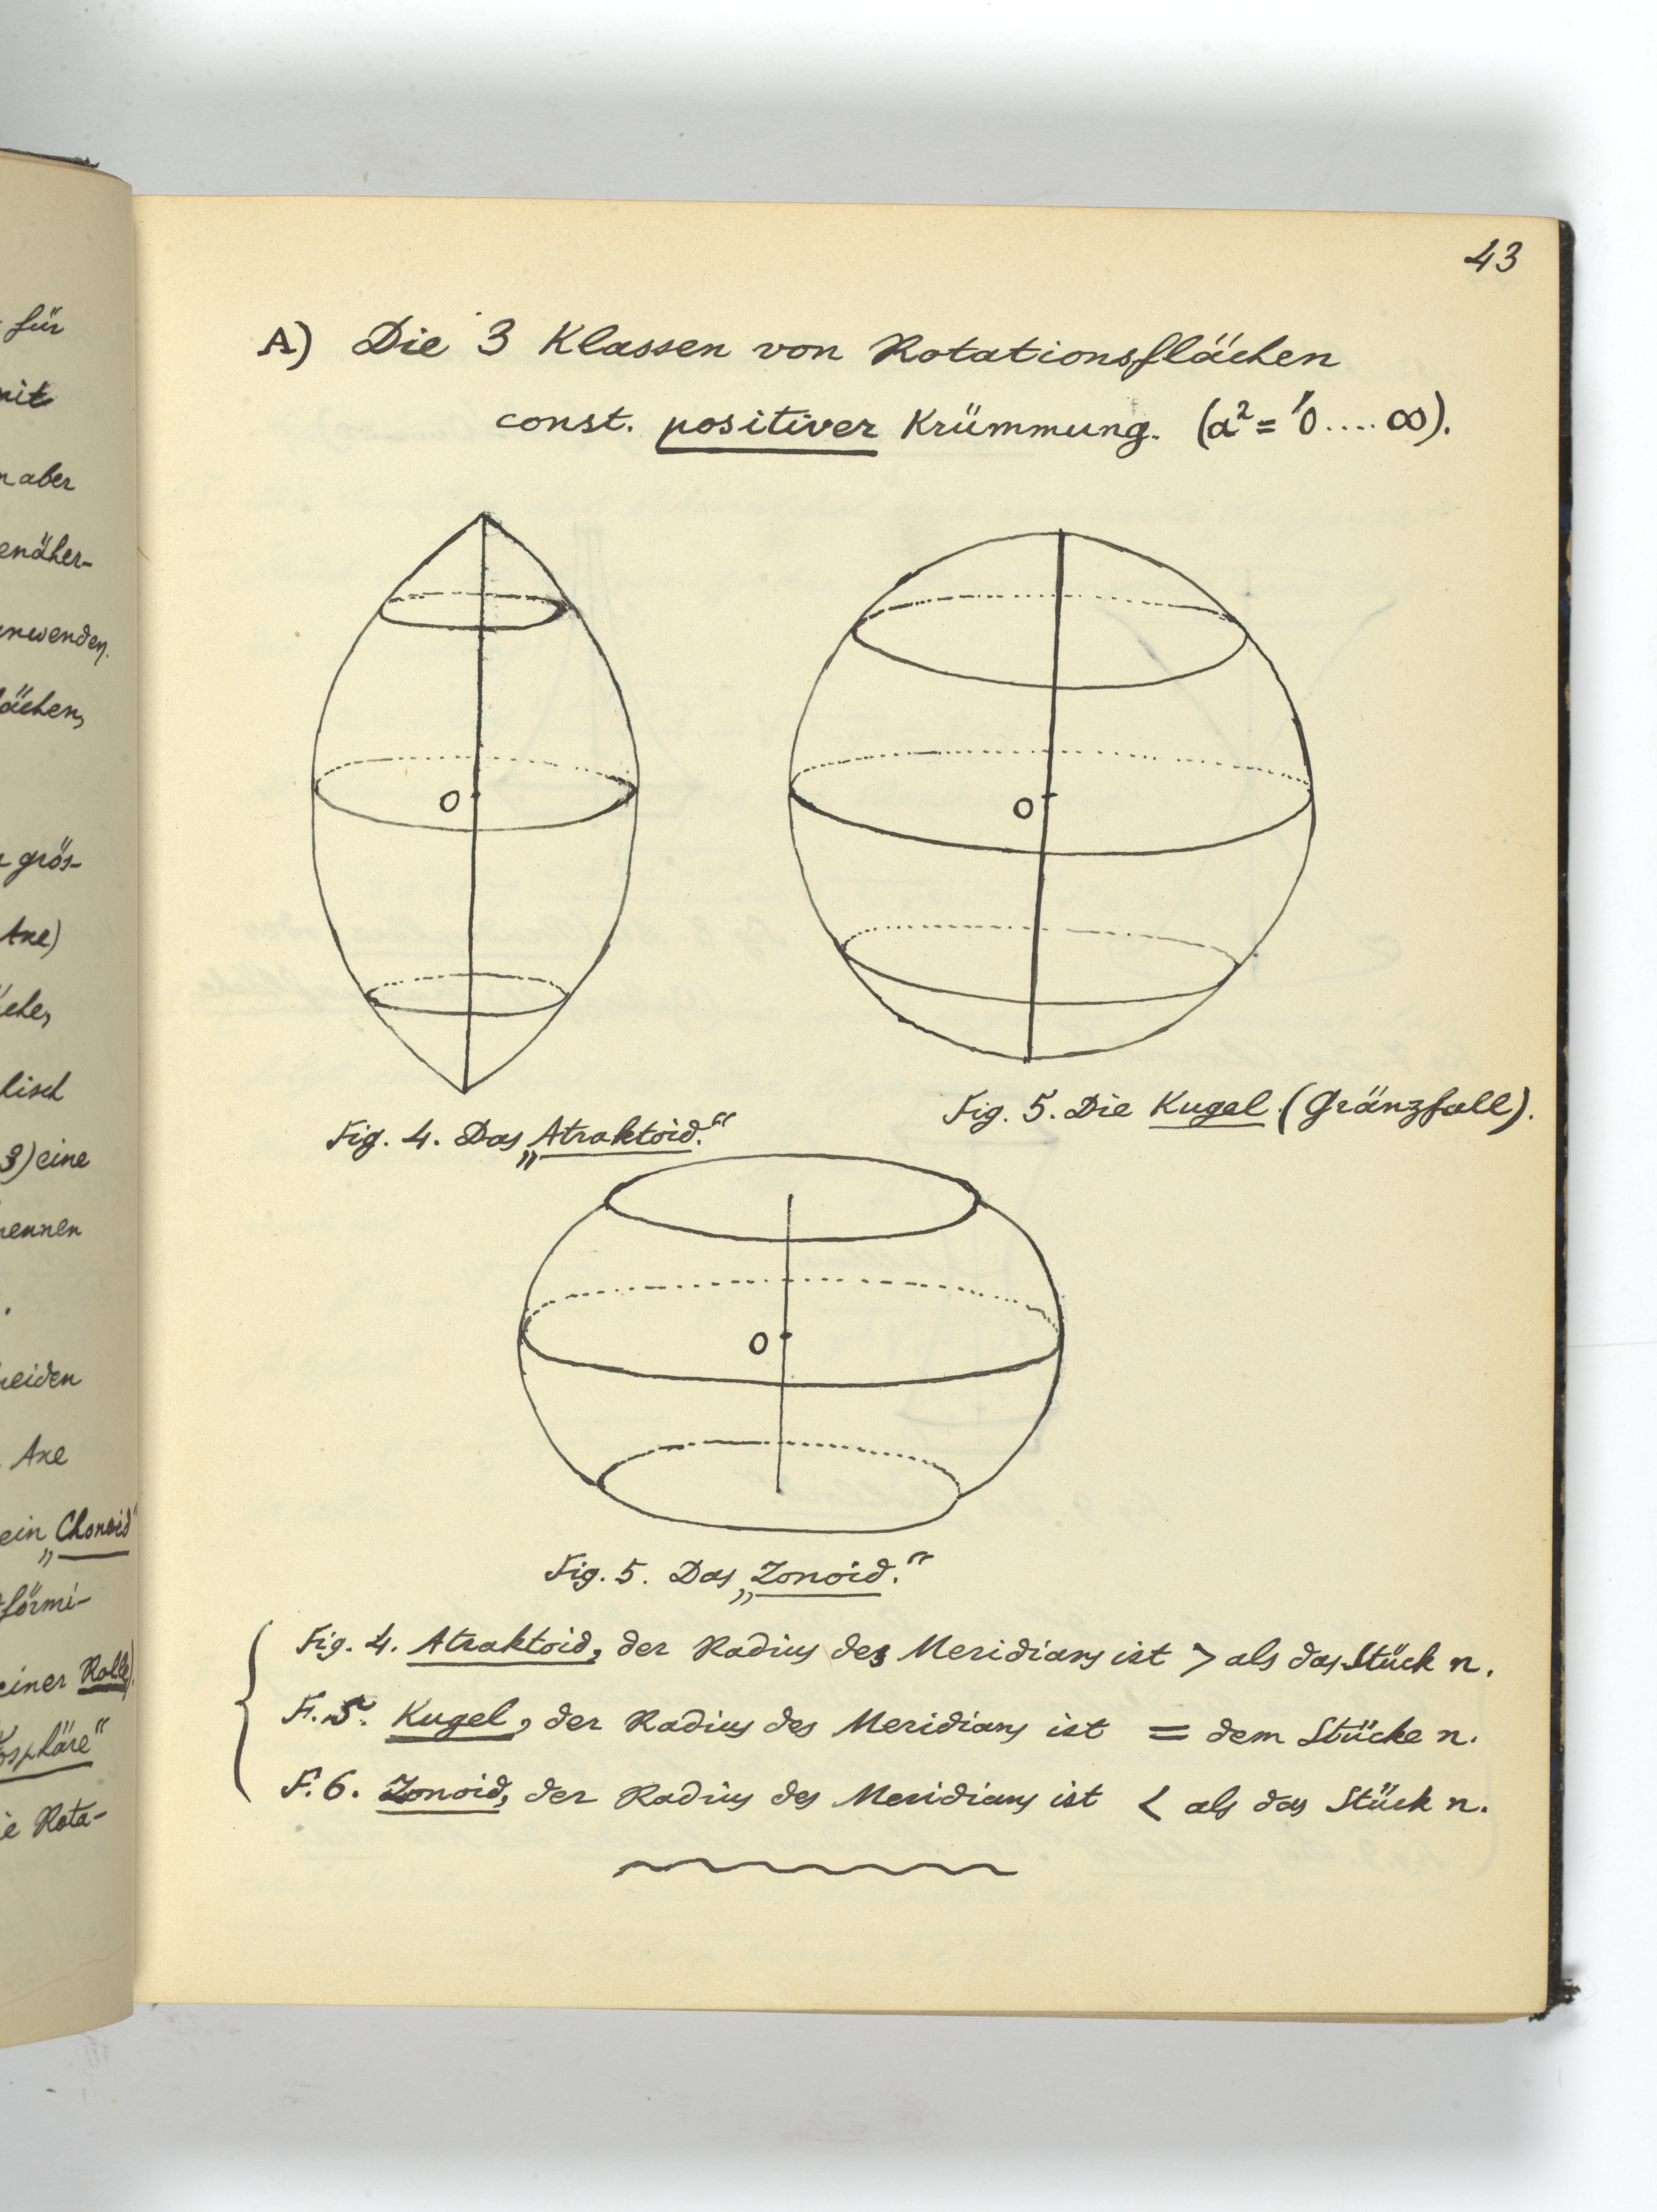 für
mit
aber
enäher-
anwenden.
ächen,
grös-
Axe)
3) eine
nennen
Axe
ein „Chonoid"
förmi-
einer Rolle).
osphäre"
ie Rota-
43
A) Die 3 Klassen von Rotationsflächen
const. positiver Krümmung. (a² = 0 .... ∞).
O
O
Fig. 4. Das „Atraktoid."
Fig. 5. Die Kugel. (Gränzfall).
O
Fig. 5. Das „Zonoid."
Fig. 4. Atraktoid, der Radius des Meridians ist > als das Stück n.
F. 5. Kugel, der Radius des Meridians ist = dem Stücke n.
F. 6. Zonoid, der Radius des Meridians ist < als das Stück n.